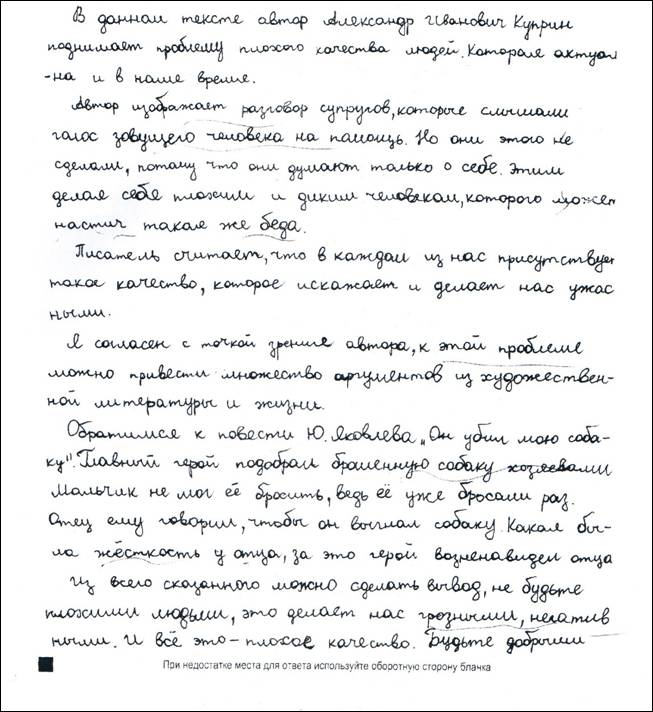 В данном тексте автор Александр Иванович Куприн
поднимает проблему плохого качества людей. Которая актуал
-на и в наше время.
Автор изображает разговор супругов, которые слышали
голос зовущего человека на помощь. Но они этого не
сделали, потому что они думают только о себе. Этим
делая себе плохим и диким человеком, которого может
настич такая же беда.
Писатель считает, что в каждом из нас присутствует
такое качество, которое искажает и делает нас ужас
ными.
Я согласен с точкой зрение автора, к этой проблеме
можно привести множество аргументов из художествен-
ной литературы и жизни.
Обратимся к повести Ю. Яковлева „Он убил мою соба-
ку". Главный герой подобрал брошенную собаку хозяевами
Мальчик не мог её бросить, ведь её уже бросали раз.
Отец ему говорил, чтобы он выгнал собаку. Какая бы-
ла жёсткость у отца, за это герой возненавидел отца
Из всего сказанного можно сделать вывод, не будьте
плохими людьми, это делает нас грозными, негатив
ными. И всё это - плохое качество. Будьте добрыми
При недостатке места для ответа используйте оборотную сторону бланка